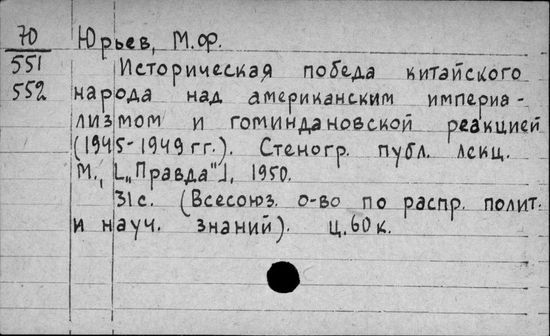 70 Юрьев, М.Ф.
551 Историческая победа китайского
552 народа над американским империа-
лизмом и гоминдановской реакцией
(1945-1949 гг.). Стеногр. публ. лекц.
М., [„Правда"], 1950.
31 с. (Всесоюз. о-во по распр. полит.
и науч. знаний). ц. 60 к.